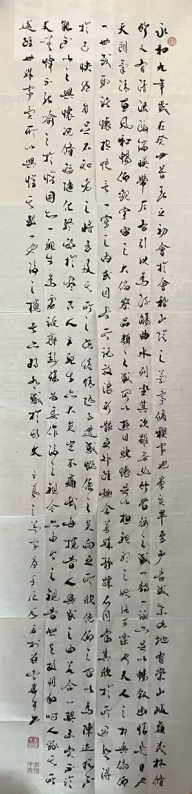 永和九年歲在癸丑暮春之初會於會稽山陰之蘭亭修禊事也羣賢畢至少長咸集此地有崇山峻領茂林脩
竹又有清流激湍暎帶左右引以為流觴曲水列坐其次雖無絲竹管弦之盛一觴一詠亦足以暢敘幽情是日也
天朗氣清惠風和暢仰觀宇宙之大俯察品類之盛所以遊目騁懷足以極視聽之娛信可樂也夫人之相與俯仰
一世或取諸懷抱悟言一室之內或因寄所託放浪形骸之外雖趣舍萬殊靜躁不同當其欣於所遇暫得
於己快然自足不知老之將至及其所之既惓情隨事遷感慨係之矣向之所欣俛仰之間以為陳迹猶不
能不以之興懷況脩短隨化終期於盡古人云死生亦大矣豈不痛哉每攬昔人興感之由若合一契未嘗不臨
文嗟悼不能喻之於懷固知一死生為虛誕齊彭殤為妄作後之視今亦由今之視昔悲夫故列敘時人錄其所
述雖世殊事異所以興懷其致一也後之攬者亦將有感於斯文